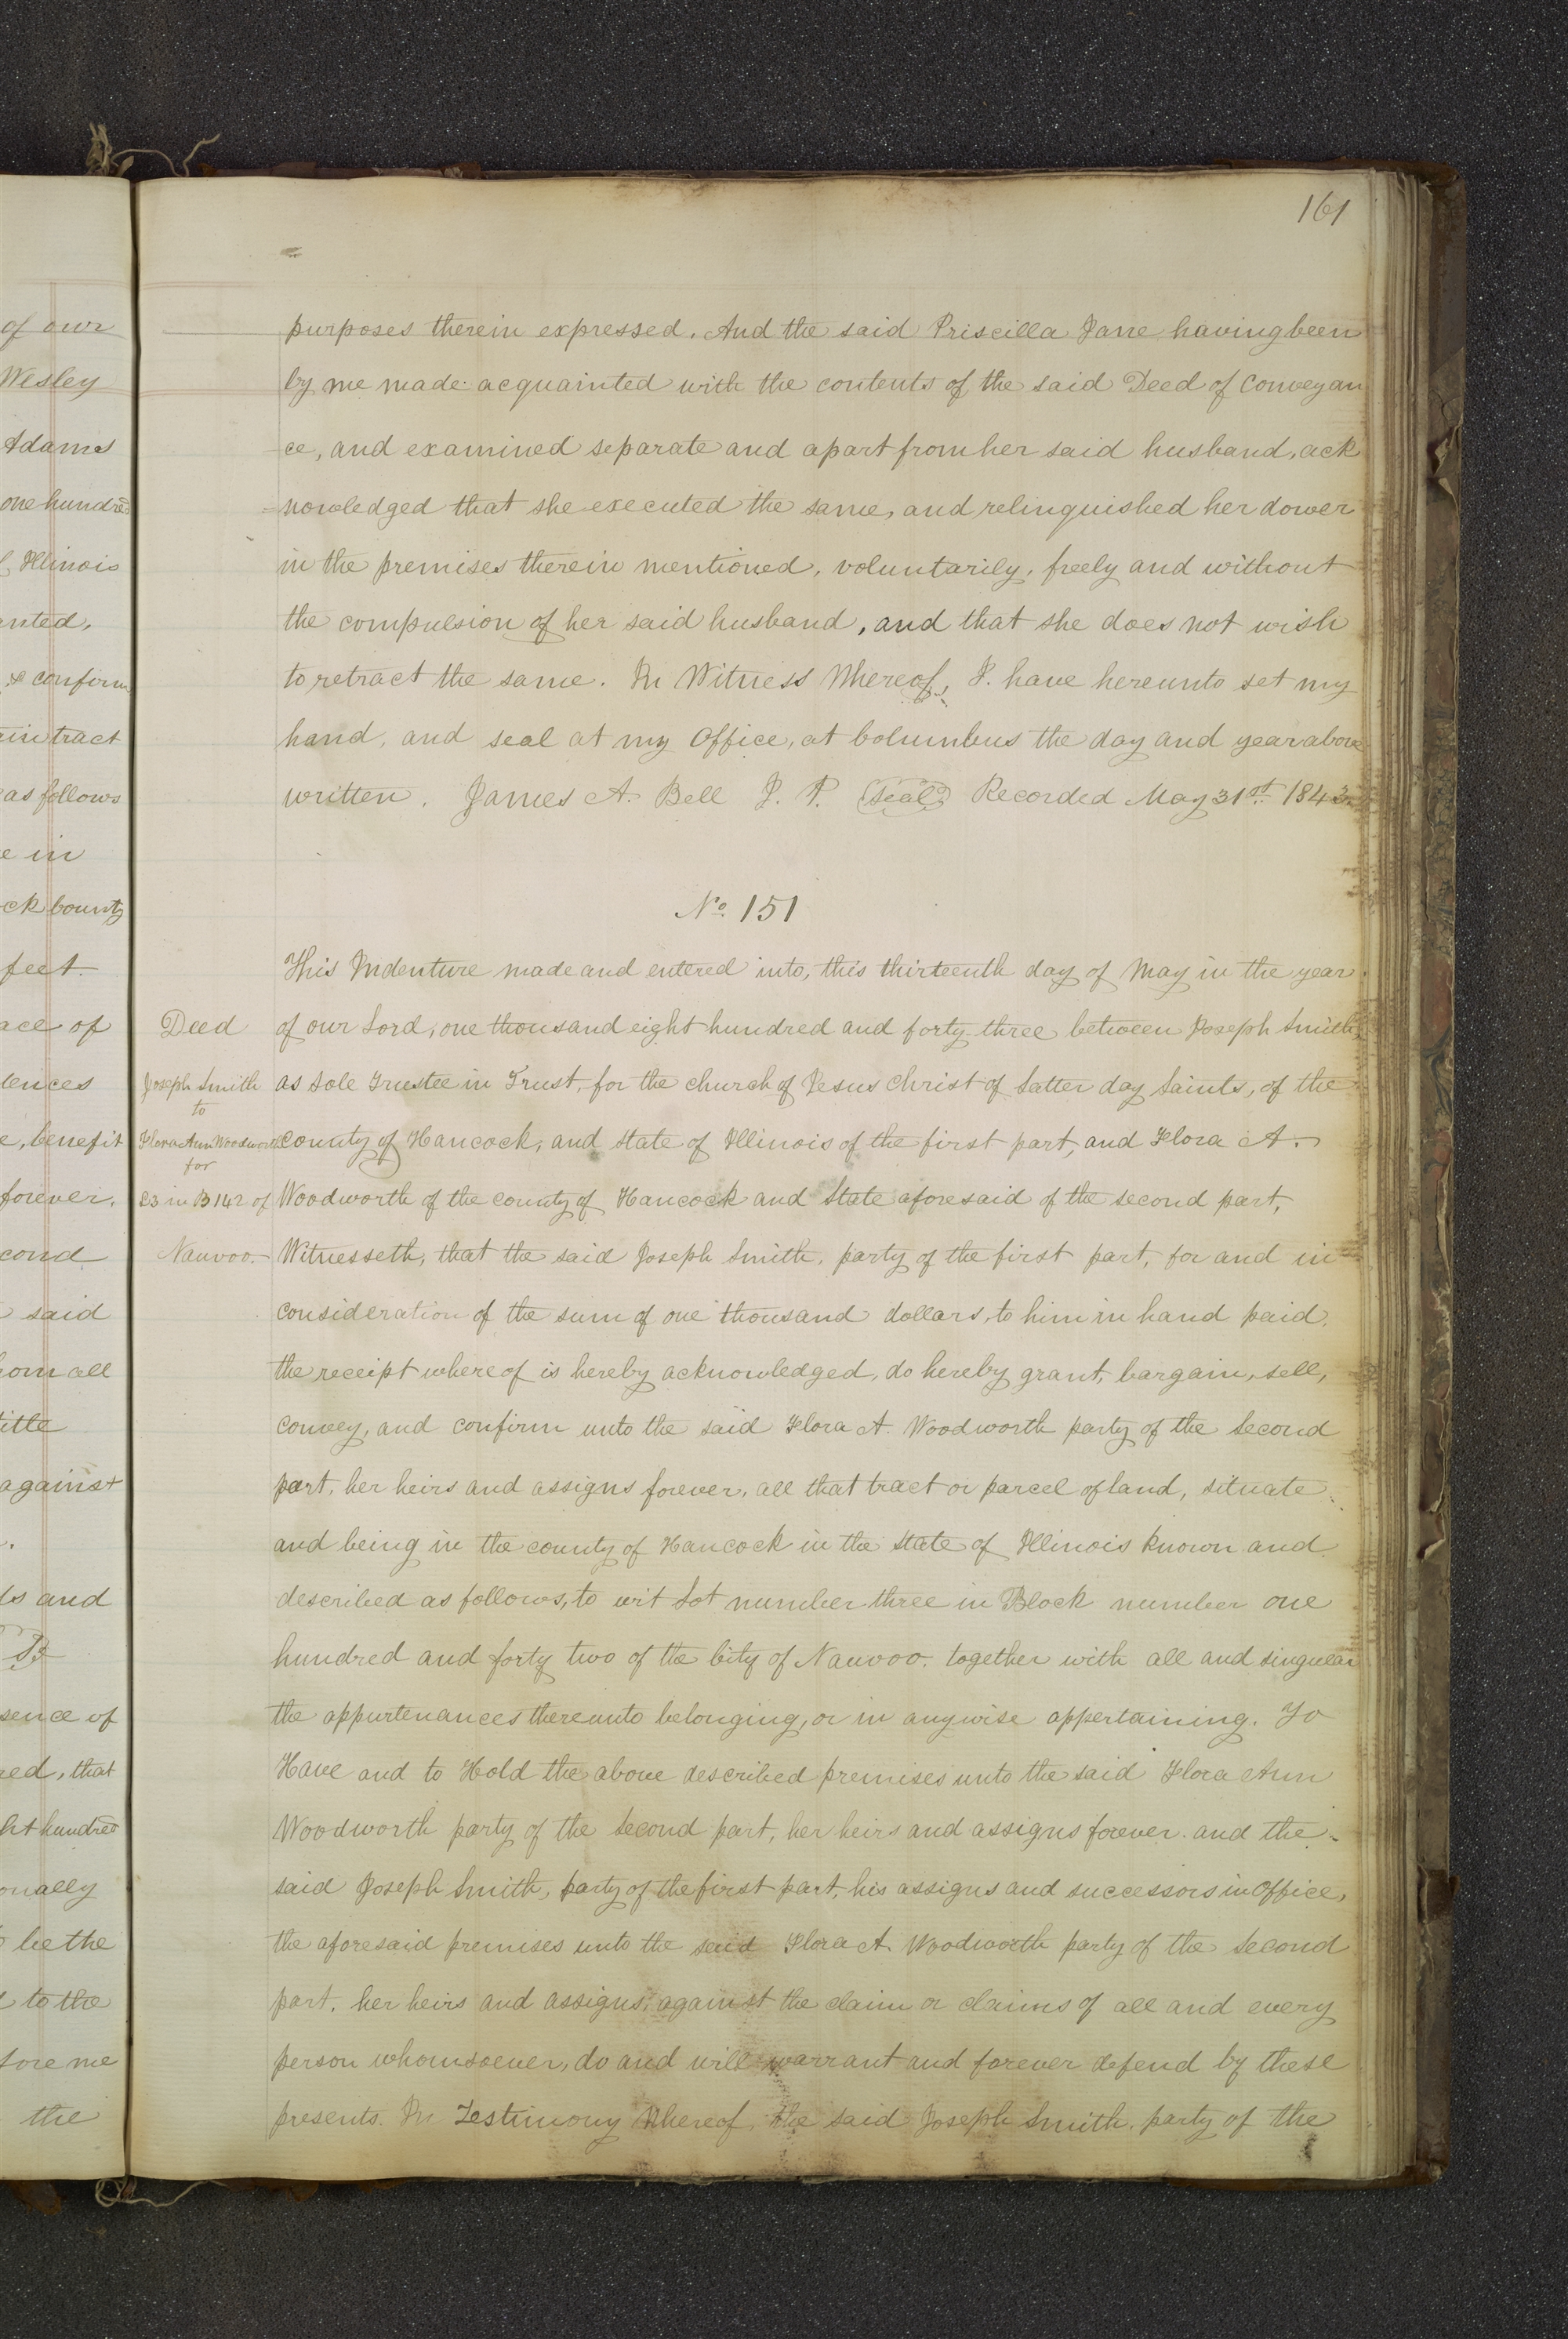 161
of our
Wesley
Adams
one hundred
Illinois
anted,
& confirm
tract
as follows
in
ck County
feet
ace of
dences
e, benefit
forever.
cond
said
om all
title
against
ds and
sence of
red, that
ht hundred
onally
be the
to the
fore me
the
purposes therein expressed. And the said Priscilla Jane having been
by me made acquainted with the contents of the said Deed of Conveyan
ce, and examined separate and apart from her said husband, ack
=nowledged that she executed the same, and relinquished her dower
in the premises therein mentioned, voluntarily, freely and without
the compulsion of her said husband, and that she does not wish
to retract the same. In Witness Whereof, I. have hereunto set my
hand, and seal at my Office, at Columbus the day and year above
written. James A. Bell J. P. (Seal) Recorded May 31st. 1843.
No. 151
Deed
Joseph Smith
to
Flora Ann Woodworth
for
L3 in B 142 of
Nauvoo.
This Indenture made and entered into, this thirteenth day of May in the year
of our Lord, one thousand eight hundred and forty three between Joseph Smith,
as Sole Trustee in Trust, for the church of Jesus Christ of Latter day Saints, of the
County of Hancock, and State of Illinois of the first part, and Flora A.
Woodworth of the county of Hancock and State aforesaid of the second part,
Witnesseth, that the said Joseph Smith, party of the first part, for and in
consideration of the sum of one thousand dollars, to him in hand paid,
the receipt whereof is hereby acknowledged, do hereby grant, bargain, sell,
convey, and confirm unto the said Flora A. Woodworth party of the Second
part, her heirs and assigns forever, all that tract or parcel of land, situate
and being in the county of Hancock in the State of Illinois known and
described as follows, to wit Lot number three in Block number one
hundred and forty two of the City of Nauvoo. together with all and singular
the appurtenances thereunto belonging, or in anywise appertaining. To
Have and to Hold the above described premises unto the said Flora Ann
Woodworth party of the Second part, her heirs and assigns forever. and the
said Joseph Smith, party of the first part, his assigns and successors in Office,
the aforesaid premises unto the said Flora A. Woodworth party of the Second
part, her heirs and assigns, against the claim or claims of all and every
person whomsoever, do and will warrant and forever defend by these
presents. In Testimony Whereof, the said Joseph Smith, party of the